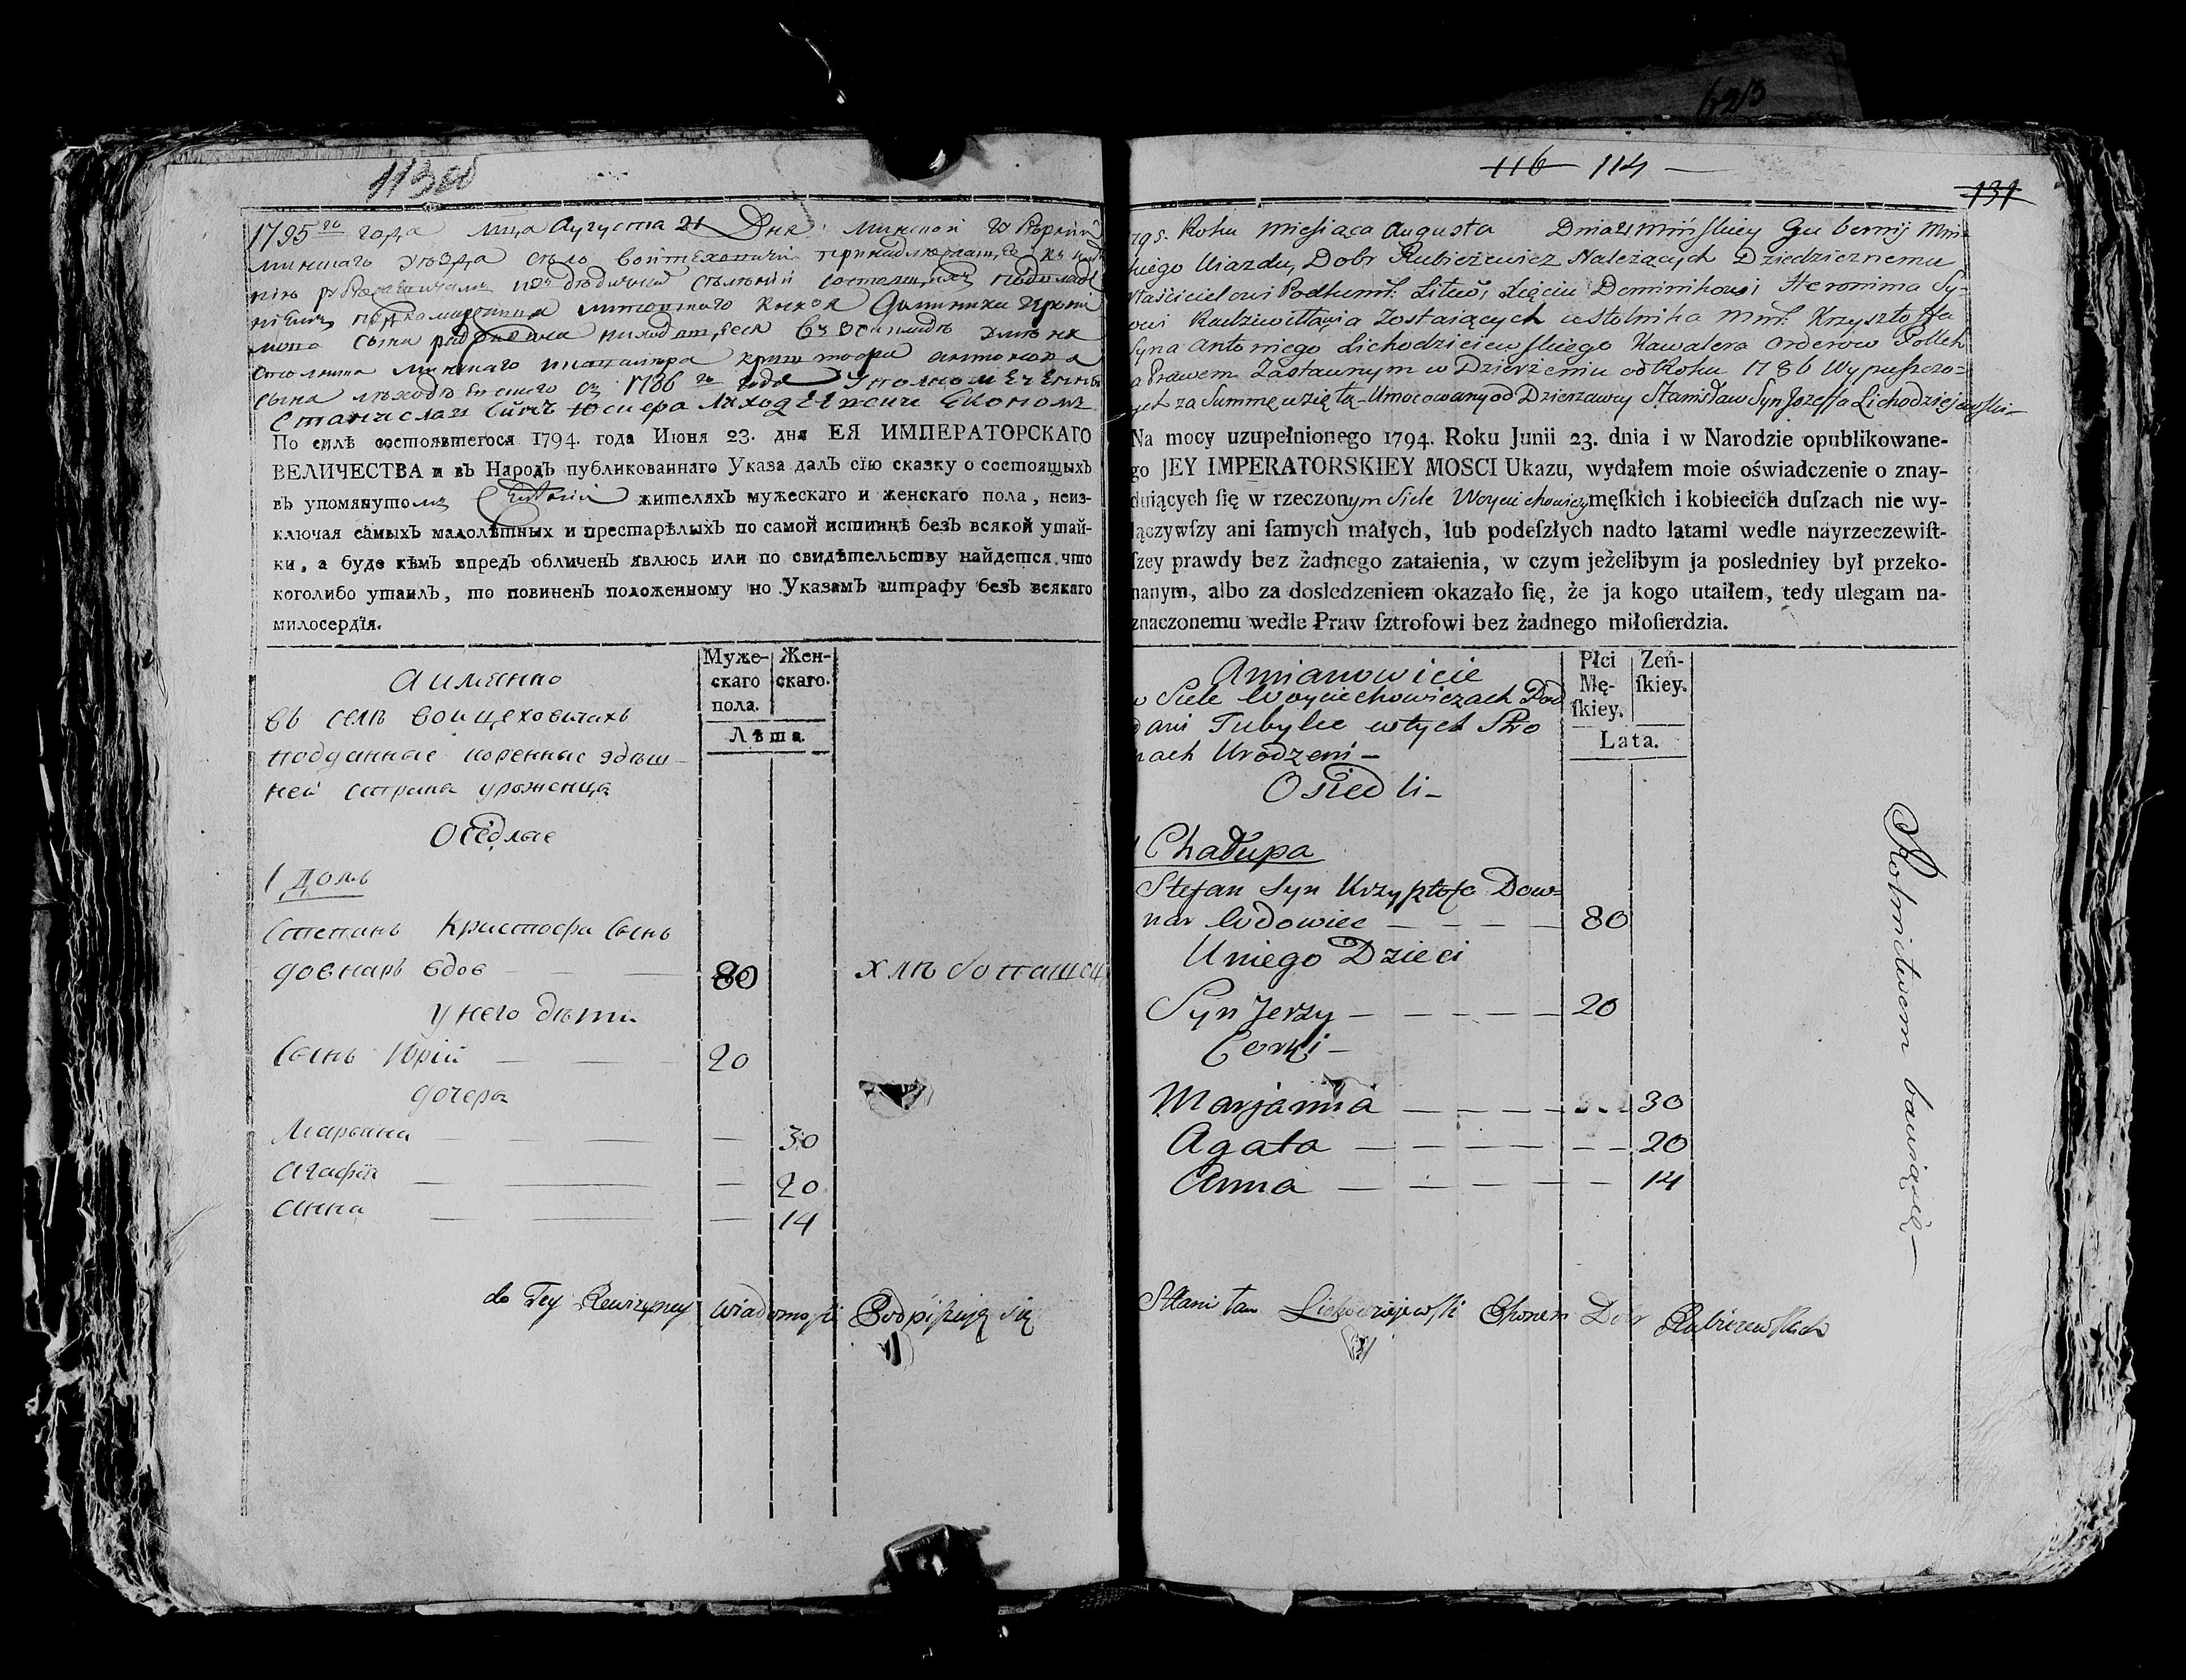 113 об
1795 го года Мца Августа 21 Дня Минской Губернии
Минскаго уезда село Воитеховичи принадлежащее
подкомория Литовского Князя Доминика
сына находящееся
столника Минскаго Криштофа Антонова
сына с 1786 го года
Станислав Сын Юзефа Лиходзеевски Економ
По силѣ состоявшегося 1794. года Июня 23. дня ЕЯ ИМПЕРАТОРСКАГО
ВЕЛИЧЕСТВА и въ Народъ публикованнаго Указа далъ сїю сказку о состоящыхъ
въ упомянутомъ жителяхъ мужескаго и женскаго пола, неиз-
ключая самыхъ малолѣтныхъ и престарѣлыхъ по самой истиннѣ безъ всякой утай-
ки, а буде кѣмъ впредъ обличенъ явлюсь или по свидѣтельству найдется что
коголибо утаилъ, то повиненъ положенному по Указамъ штрафу безъ всякаго
милосердїя.
Муже-
скаго
пола.
Жен-
скаго.
Лѣта.
А имянно
въ селѣ Воицеховичахъ
подданные коренные здѣш-
ней страны уроженца
Осѣдлые
1 домъ
Степанъ Кристофа сынъ
Довнаръ вдов — — 80
хлѣбопашец
у него дѣти
Сынъ Юрій — — 20
дочера
Марьяна — — — 30
Агафія — — — 20
Анна — — — 14
do Tey Rewizyney wiadomości Podpisuję się
116 114 —
131
1795. Roku Miesiąca Augusta Dnia 21 Mińskiey Gubernij Miń-
skiego Ujazdu, Dobr Rubieżewicz Należących Dziedzicznemu
Właścicielowi Podkom: Litew: Xięciu Dominikowi Heronima Sy-
owi Radziwiłłowi Zostaiących u Stolnika Miń: Krzysztofa
Syna Antoniego Lichodzieiewskiego Kawalera Orderow Polsk
a Prawem Zastawnym w Dzierżeniu od Roku 1786 Wypuszczo-
nych za Summę wziętą Umocowany od Dzierżawcy Stanisław Syn Jozeffa Lichodziejewski —
Na mocy uzupełnionego 1794. Roku Junii 23. dnia i w Narodzie opublikowane-
go JEY IMPERATORSKIEY MOSCI Ukazu, wydałem moie oświadczenie o znay-
duiących ſię w rzeczonym Siele Woyciechowiczach męſkich i kobiecich duſzach nie wy-
łączywſzy ani ſamych małych, lub podeſzłych nadto latami wedle nayrzeczewiſt-
ſzey prawdy bez żadnego zataienia, w czym jeżelibym ja posledniey był przeko-
nanym, albo za dosledzeniem okazało ſię, że ja kogo utaiłem, tedy ulegam na-
znaczonemu wedle Praw ſztrofowi bez żadnego miłoſierdzia.
Płci
Mę-
ſkiey.
Zeń-
ſkiey.
Lata.
Amianowicie
w Siele Woyciechowiczach Pod
dani Tubylce w tych Stro
nach Urodzeni —
Osiedli —
1 Chałupa
Stefan Syn Krzysztofa Dow=
nar Wdowiec — — — — 80
U niego Dzieci
Syn Jerzy — — — — — 20
Corki —
Marjanna — — — — 30
Agata — — — — — — 20
Anna — — — — — — 14
Rolnictwem bawiąsię —
Stanisław Lichodziejewski Ekonom Dobr Rubieżewskich